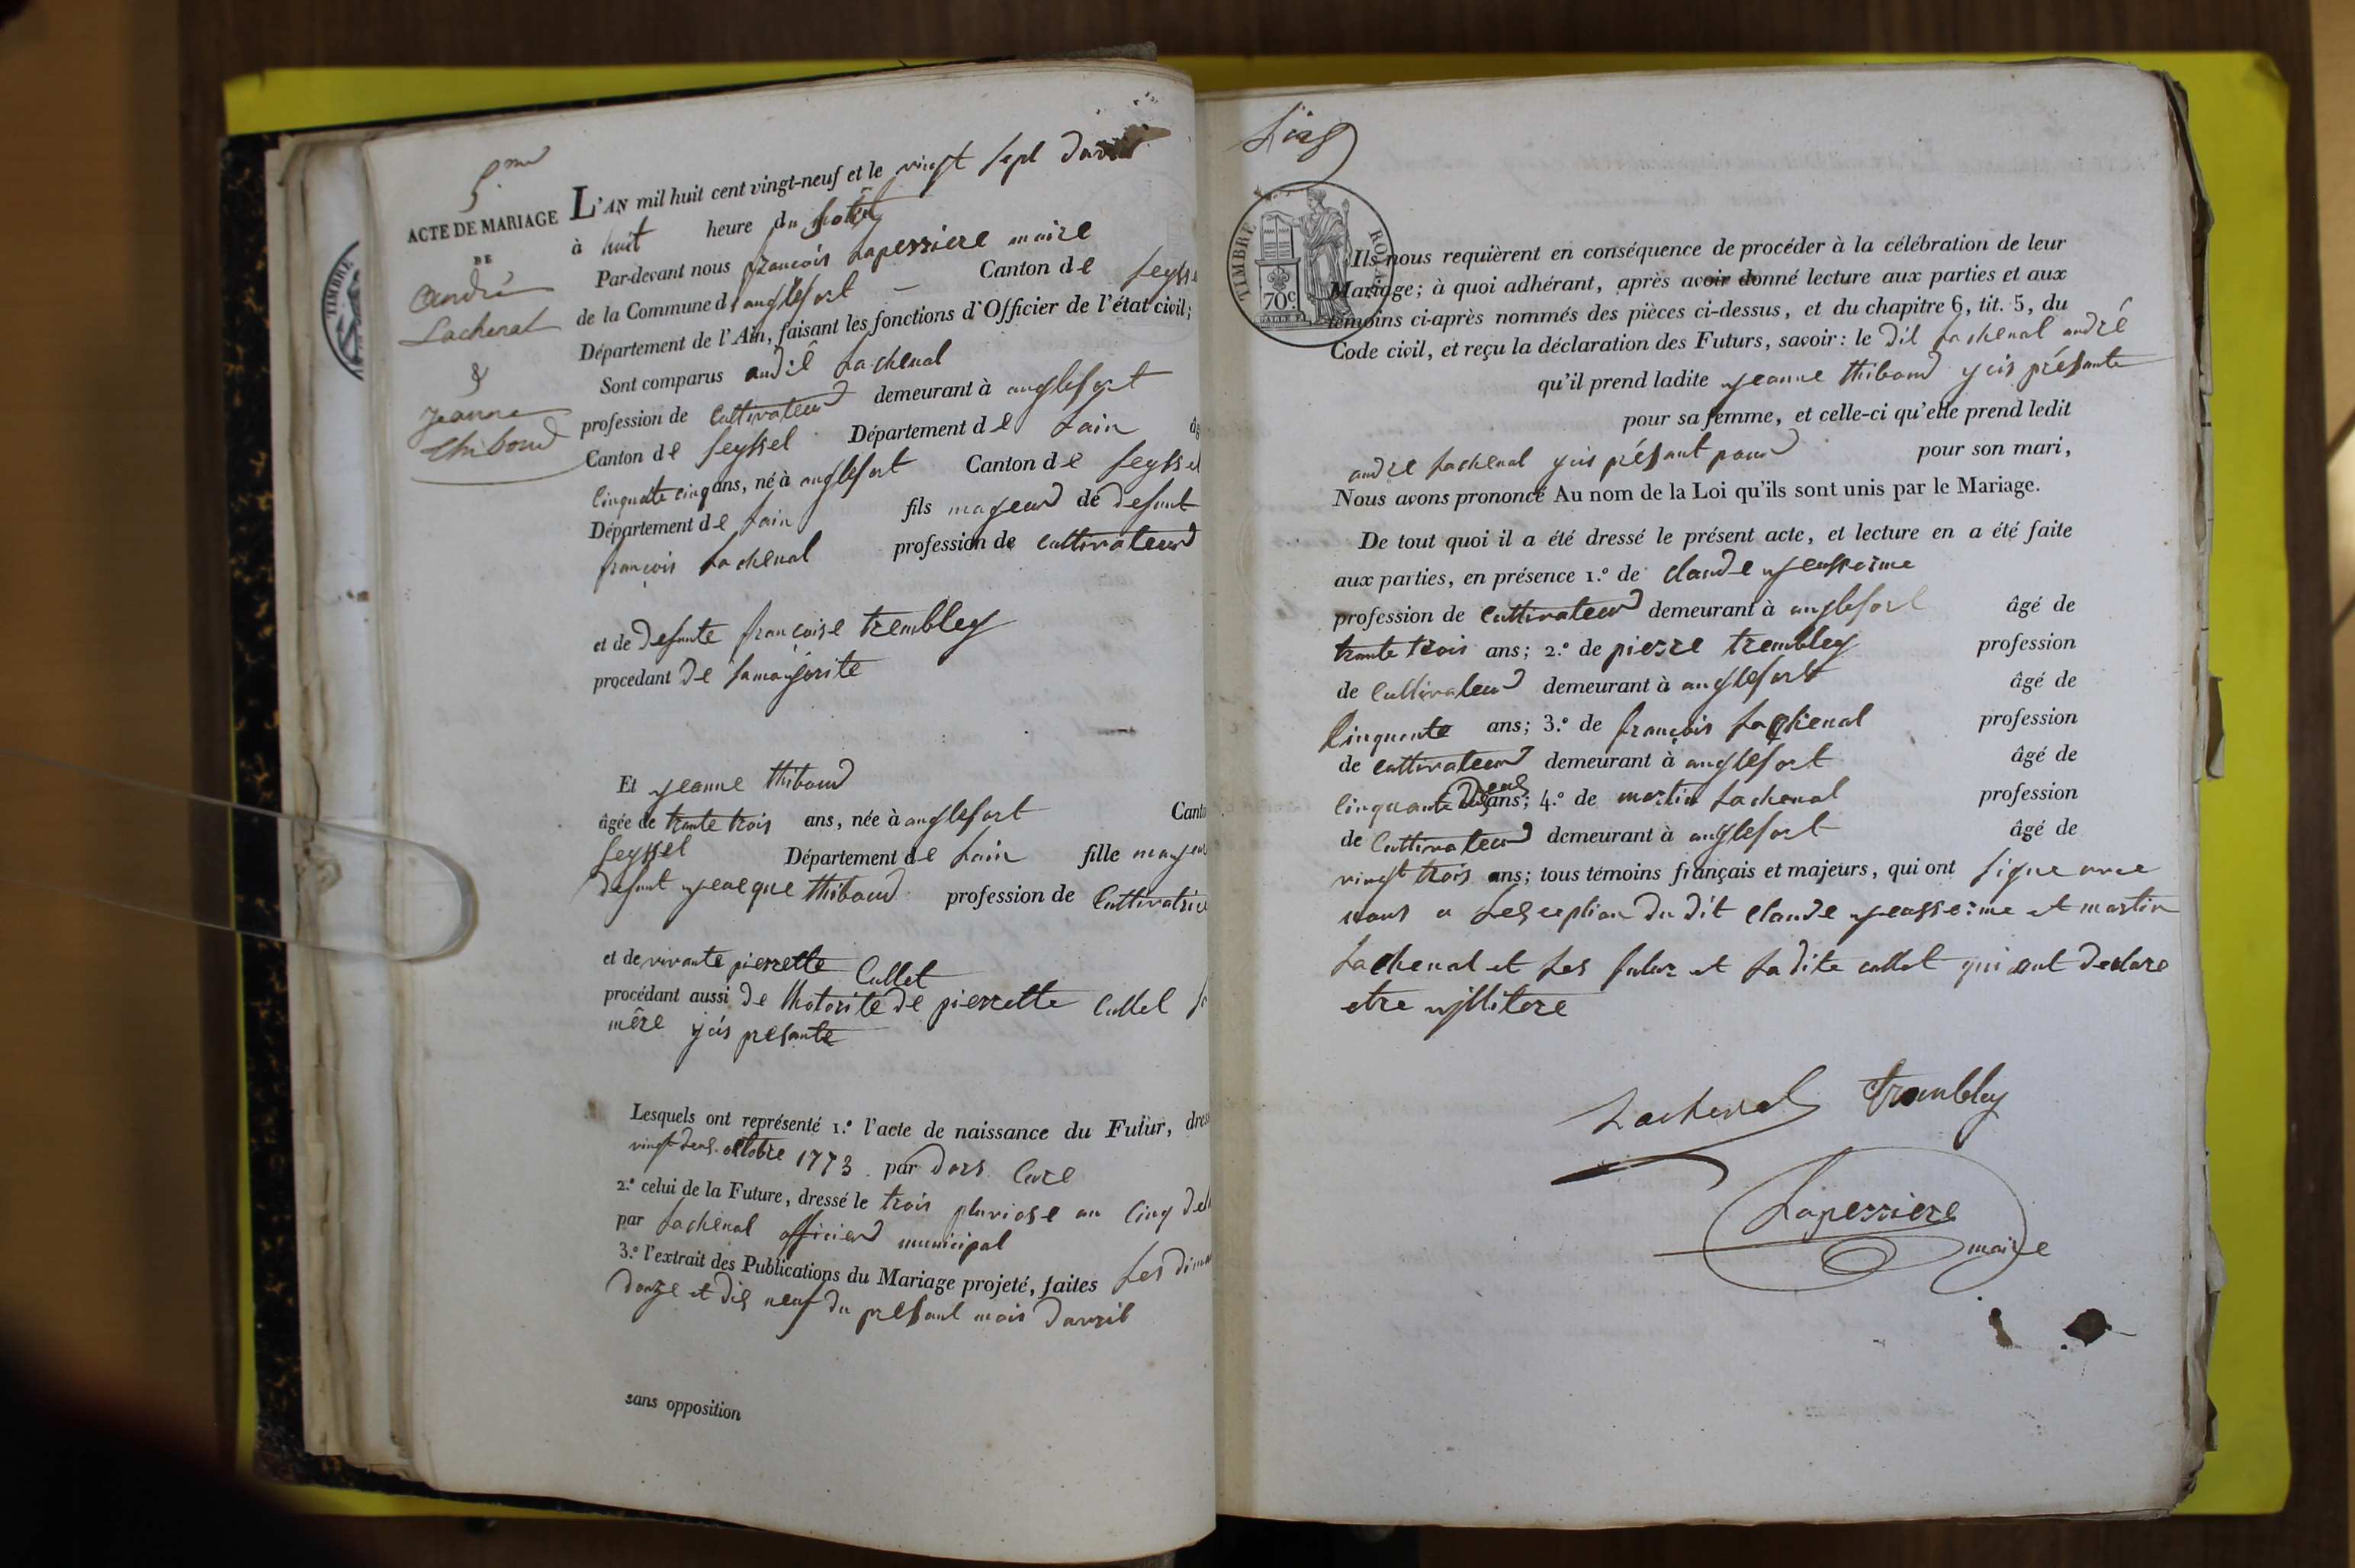 5.me
ACTE DE MARIAGE
DE
André
Lachenal
&
jeanne
thiboud
TIMBRE
L'AN mil huit cent vingt-neuf et le vingt sept davril
à huit heure du
Par-devant nous francois Laperriere maire
de la Commune d'anglefort – Canton de seysse
Département de l'Ain, faisant les fonctions d'Officier de l'état civil;
Sont comparus andré Lachenal
profession de Cultivateur demeurant à anglefort
Canton de seyssel Département de Lain âg
Cinquate cinq ans, né à anglefort Canton de seyssel
Département de Lain fils majeur de defunt
francois Lachenal profession de cultivateur
et de defunte francoise trembley
procedant de samajorite
Et jeanne thiboud
âgée de trante trois ans, née à anglefort Canto
seyssel Département de Lain fille majeur
defunt jeacque thiboud profession de Cultivatrice
et de vivante pierrette Cullet
procédant aussi de Lhotorité de pierrette Cullet
mêre ycis presante
Lesquels ont représenté 1.º l'acte de naissance du Futur, dres
vingt deus octobre 1773 par dors Cure
2.º celui de la Future, dressé le trois pluviose an Cinq
par Lachenal officier municipal
3.º l'extrait des Publications du Mariage projeté, faites Les dima
douze et dix neuf du presant mois davril
sans opposition
Cinq
TIMBRE ROYAL
70c.
Ils nous requièrent en conséquence de procéder à la célébration de leur
Mariage; à quoi adhérant, après avoir donné lecture aux parties et aux
témoins ci-après nommés des pièces ci-dessus, et du chapitre 6, tit. 5, du
Code civil, et reçu la déclaration des Futurs, savoir: le dit Lachenal andré
qu'il prend ladite jeanne thiboud ycis présante
pour sa femme, et celle-ci qu'elle prend ledit
andre Lachenal ycis présant pour pour son mari,
Nous avons prononcé Au nom de la Loi qu'ils sont unis par le Mariage.
De tout quoi il a été dressé le présent acte, et lecture en a été faite
aux parties, en présence 1.º de claude
profession de Cultivateur demeurant à anglefort âgé de
trante trois ans; 2.º de pierre trembley profession
de Cultivateur demeurant à anglefort âgé de
Cinquante ans; 3.º de francois Lachenal profession
de cultivateur demeurant à anglefort âgé de
Cinquante deus ans; 4.º de martin Lachenal profession
de Cultivateur demeurant à anglefort âgé de
vingt trois ans; tous témoins français et majeurs, qui ont signe avec
nous a Lesception du dit claude et martin
Lachenal et Les futur et Ladite cullet qui ont declare
etre illitere
Lachenal Trembley
Laperriere
maire